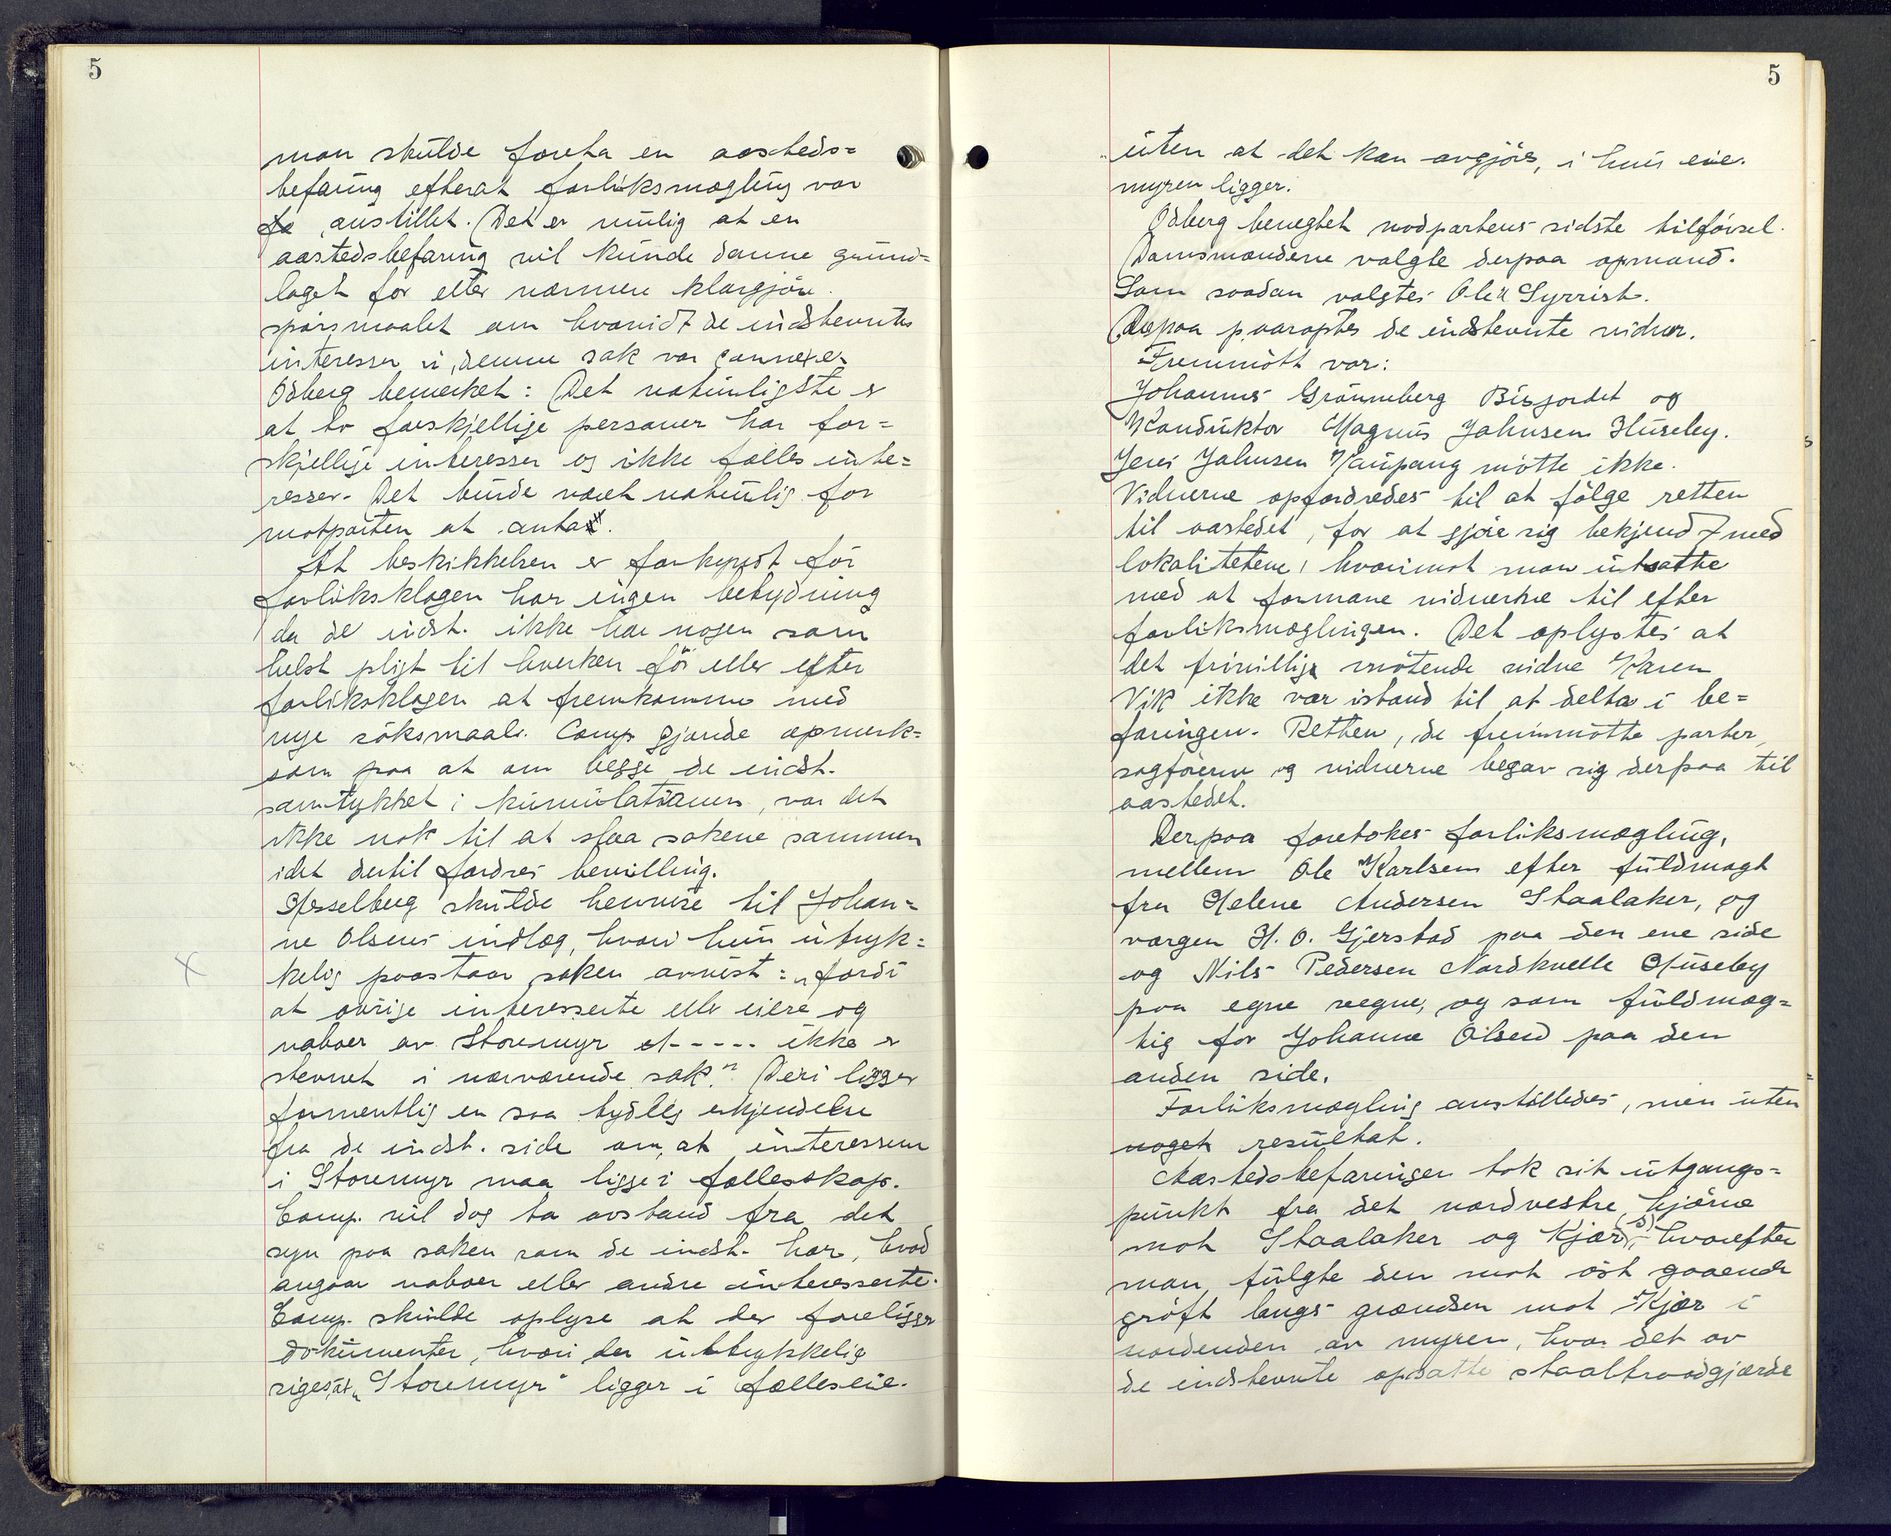 5
man skulde foreta en aasteds=
befaring efterat forliksmægling var
fo anstillet. Det er mulig at en
aastedsbefaring vil kunde danne grund=
laget for eller nærmere klargjøre
spørsmaalet om hvorvidt de indstevntes
interesser i denne sak var connexe
Ødberg bemerket: Det naturligste er
at to forskjellige personer har for=
skjellige interesser og ikke fælles inte=
resser. Det burde været naturlig for
motparten at anta.
At beskikkelsen er forkyndt før
forliksklagen har ingen betydning
da de indst. ikke har nogen som
helst pligt til hverken før eller efter
forliksklagen at fremkomme med
nye søksmaal. Comp gjorde opmerk=
som paa at om begge de indst.
samtykket i kumulationen, var det
ikke nok til at slaa sakene sammen
idet dertil fordres bevilling.
Hesselberg skulde henvise til Johan=
ne Olsens indlæg, hvori hun utryk=
kelig paastaar saken avvist: "fordi
at øvrige interesserte eller eiere og
naboer av Storemyr et ----- ikke er
stevnet i nærværende sak." Deri ligger
formentlig en saa tydelig erkjendelse
fra de indst. side om, at interessene
i Storemyr maa ligge i fællesskap.
Comp. vil dog ta avstand fra det
syn paa saken som de indst. har, hvad
angaar naboer eller andre interesserte.
Comp. skulde oplyse at der foreligger
dokumenter, hvori der uttrykkelig
siges, at "Storemyr" ligger i fælleseie.
5
uten at det kan avgjøres, i hvis eie
myren ligger.
Ødberg benegtet modpartens sidste tilførsel.
Domsmændene valgte derpaa opmand.
Som saadan valgtes Ole Syrrist.
Derpaa paaroptes de indstevnte vidner.
Fremmøtt var:
Johannes Grønneberg Bisjordet og
Konduktør Magnus Johnsen Huseby.
Jens Johnsen Kaupang møtte ikke.
Vidnerne opfordredes til at følge retten
til aastedet, for at gjøre sig bekjendt med
lokalitetene, hvorimot man utsatte
med at formane vidnerne til efter
forliksmæglingen. Det oplystes at
det frivillig møtende vidne Karen
Vik ikke var istand til at delta i be=
faringen. Retten, de fremmøtte parter,
sagførerne og vidnerne begav sig derpaa til
aastedet.
Derpaa foretokes forliksmægling,
mellem Ole Karlsen efter fuldmagt
fra Helene Andersen Staalaker, og
værgen H. O. Gjerstad paa den ene side
og Nils Pedersen Nordkvelle Huseby
paa egne vegne, og som fuldmæg=
tig for Johanne Olsen paa den
anden side.
Forliksmægling anstilledes, men uten
noget resultat.
Aastedsbefaringen tok sit utgangs=
punkt fra det nordvestre hjørne
mot Staalaker og Kjær (s), hvorefter
man fulgte den mot øst gaaende
grøft langs grændsen mot Kjær i
nordenden av myren, hvor det av
de indstevnte opsatte staaltraadgjærde